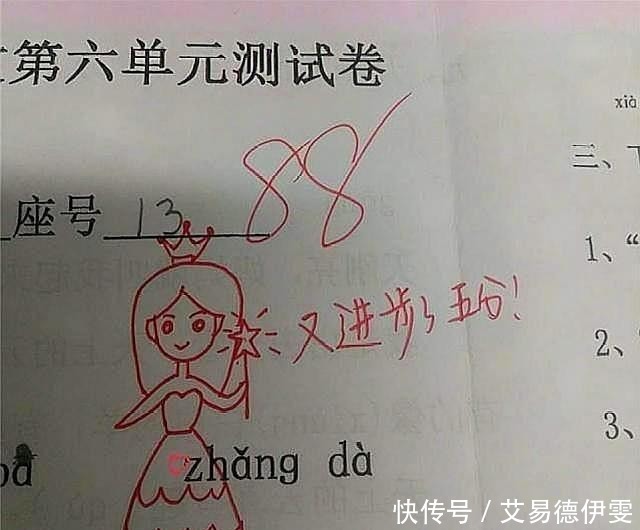 第六单元测试卷
xià
88
三、
座号 13
1、“
又进步了五分！
2、
3、
zhǎng dà
快传号 / 艾易德伊雯